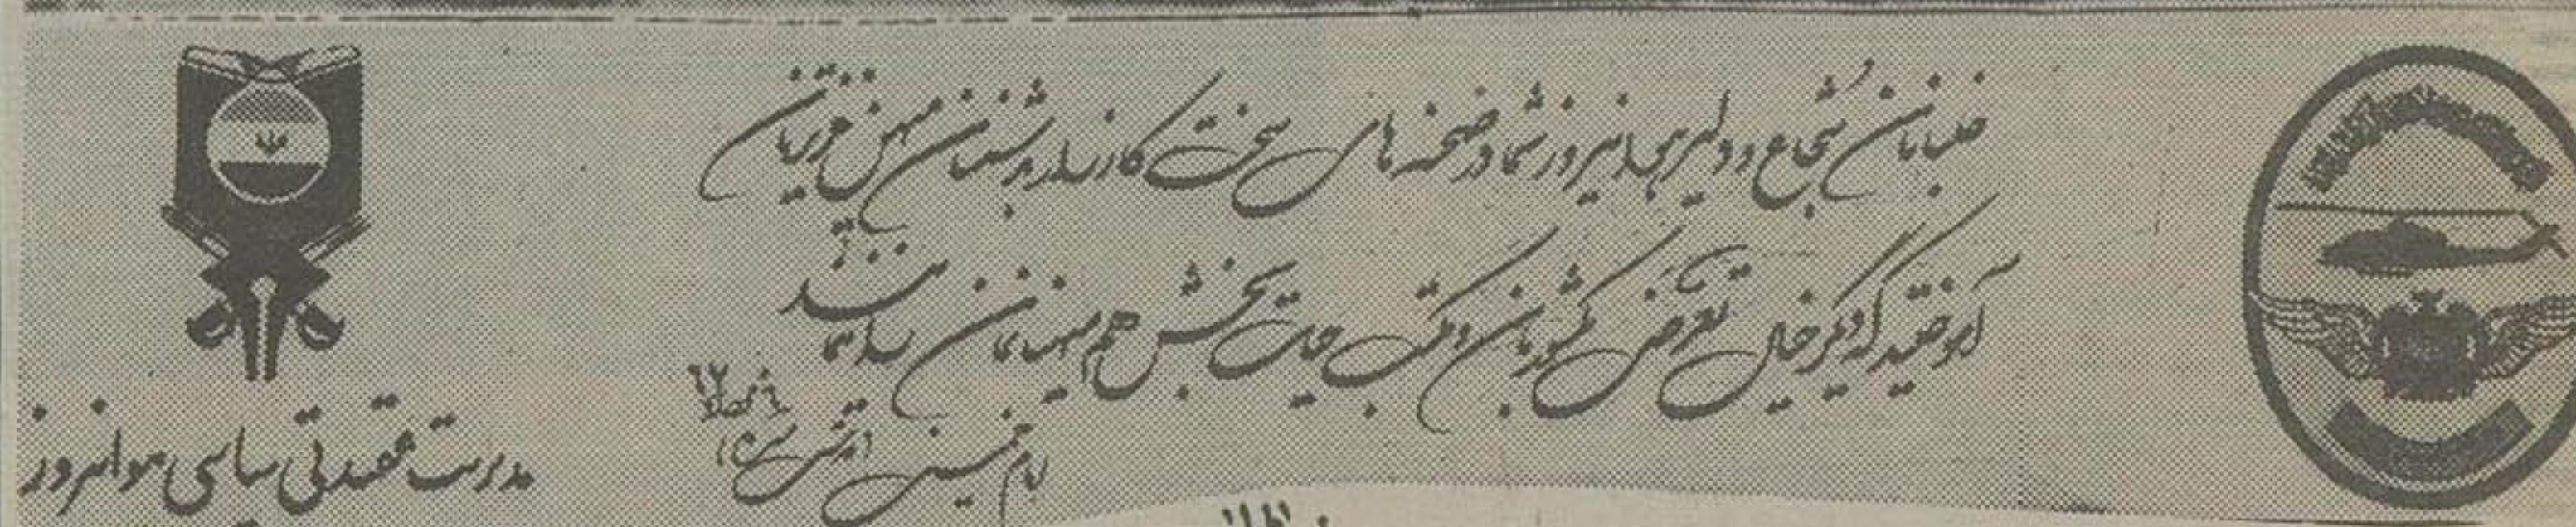 خلبانان شجاع و دلیر هوانیروز شما در صحنه های سخت کارزار به دشمنان میهن عزیزتان
آموختید که دیگر خیال تعرض به کشورمان و مکتب حیات بخش هم میهنانمان را ننمایند
امام خمینی
مدیریت عقیدتی سیاسی هوانیروز